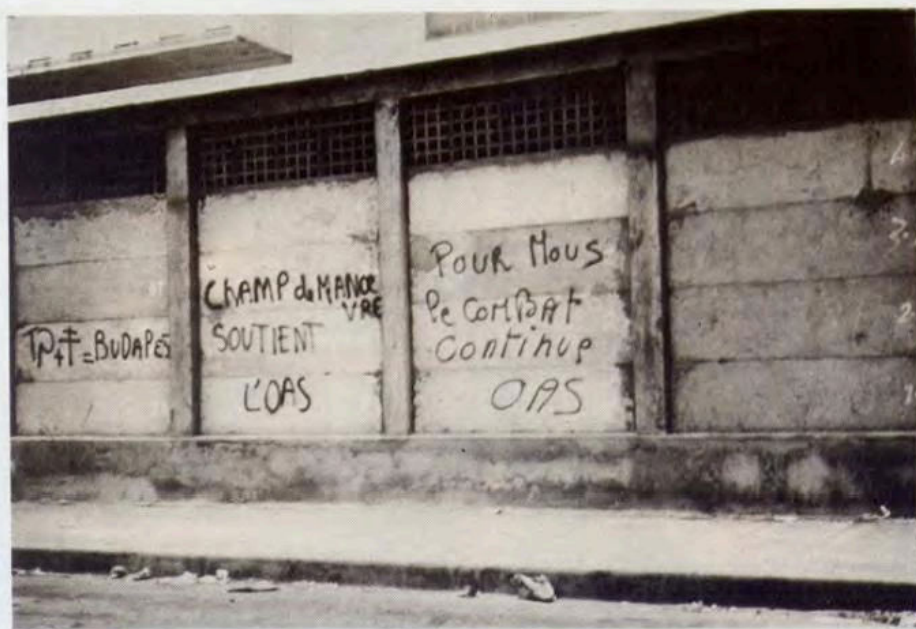 = BUDAPES
CHAMP de MANOE
VRE
SOUTIENT
L'OAS
POUR NOUS
le COMBAT
Continue
OAS
4
3
2
1